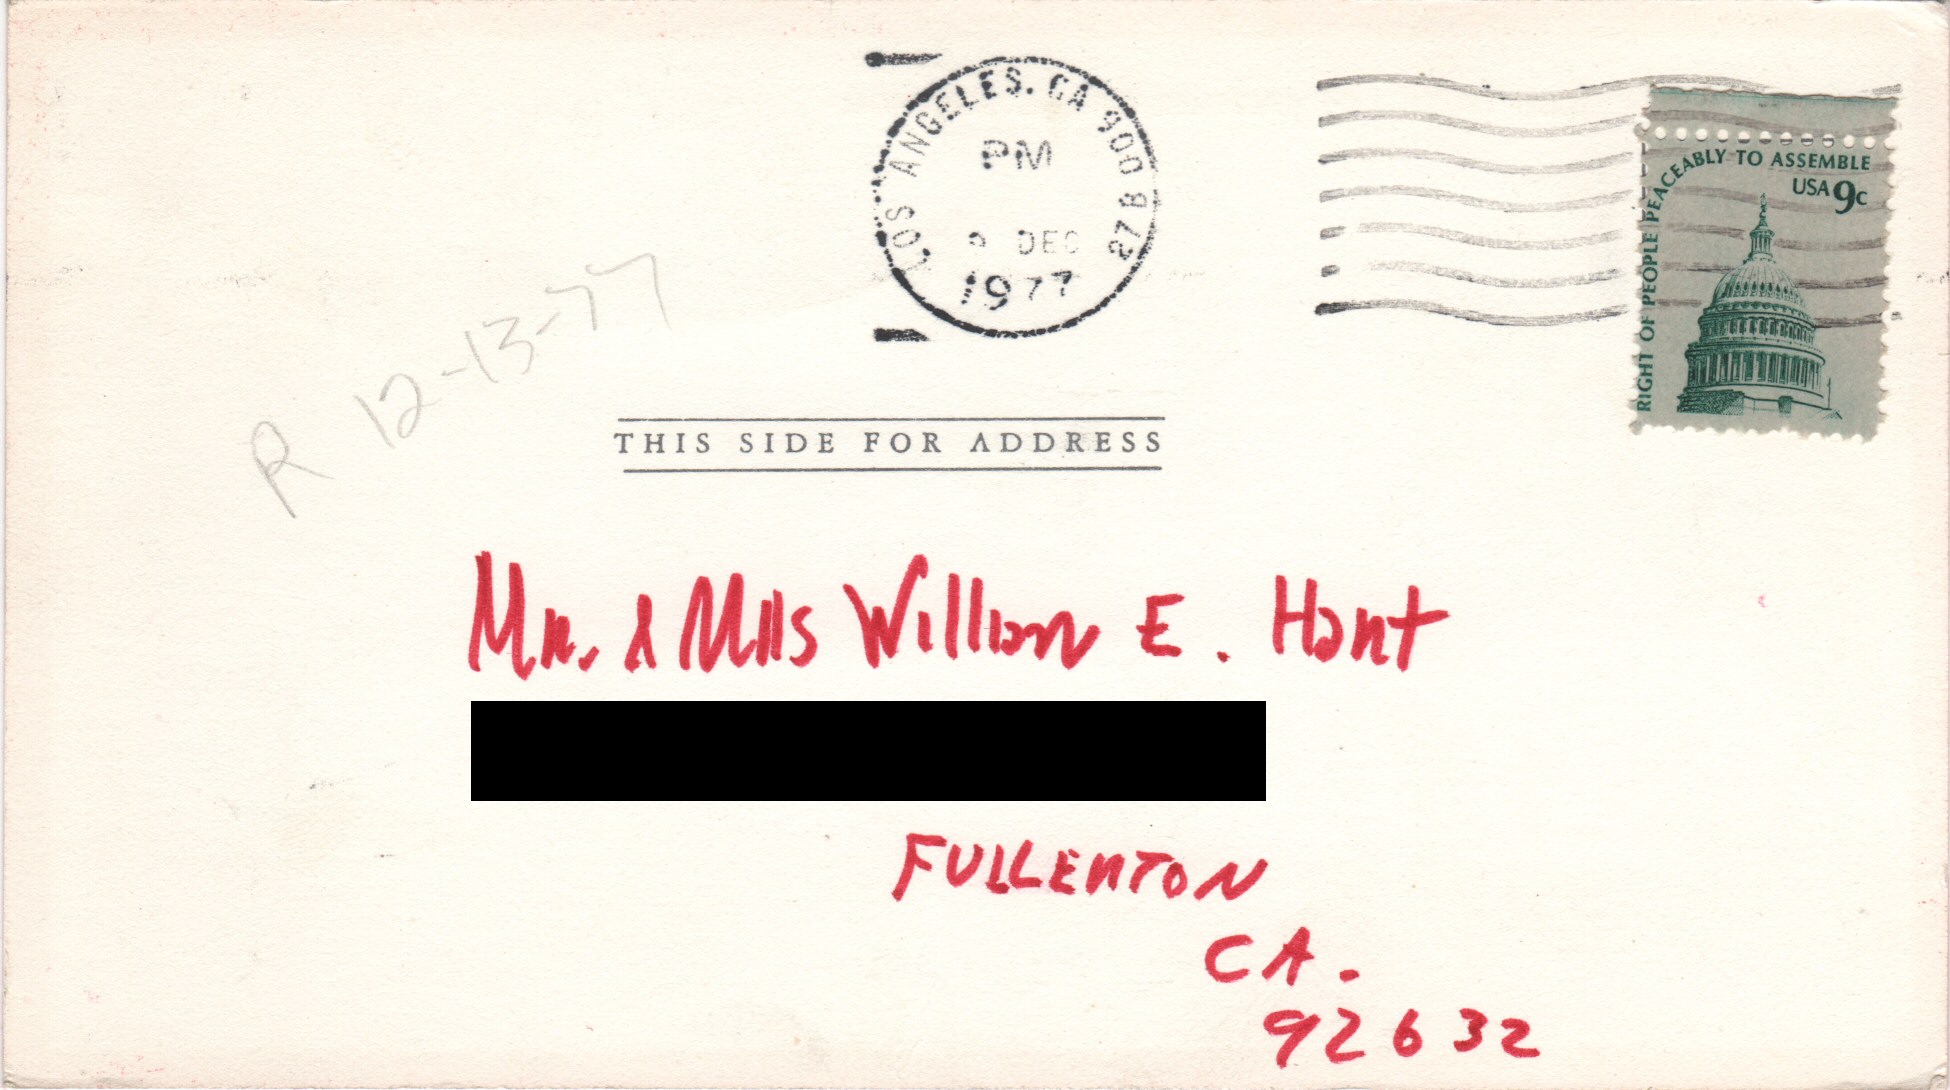 LOS ANGELES, CA 900 27B
PM
9 DEC
1977
RIGHT OF PEOPLE PEACEABLY TO ASSEMBLE
USA 9c
R 12-13-77
THIS SIDE FOR ADDRESS
Mr. & Mrs William E. Hant
FULLERTON
CA.
92632